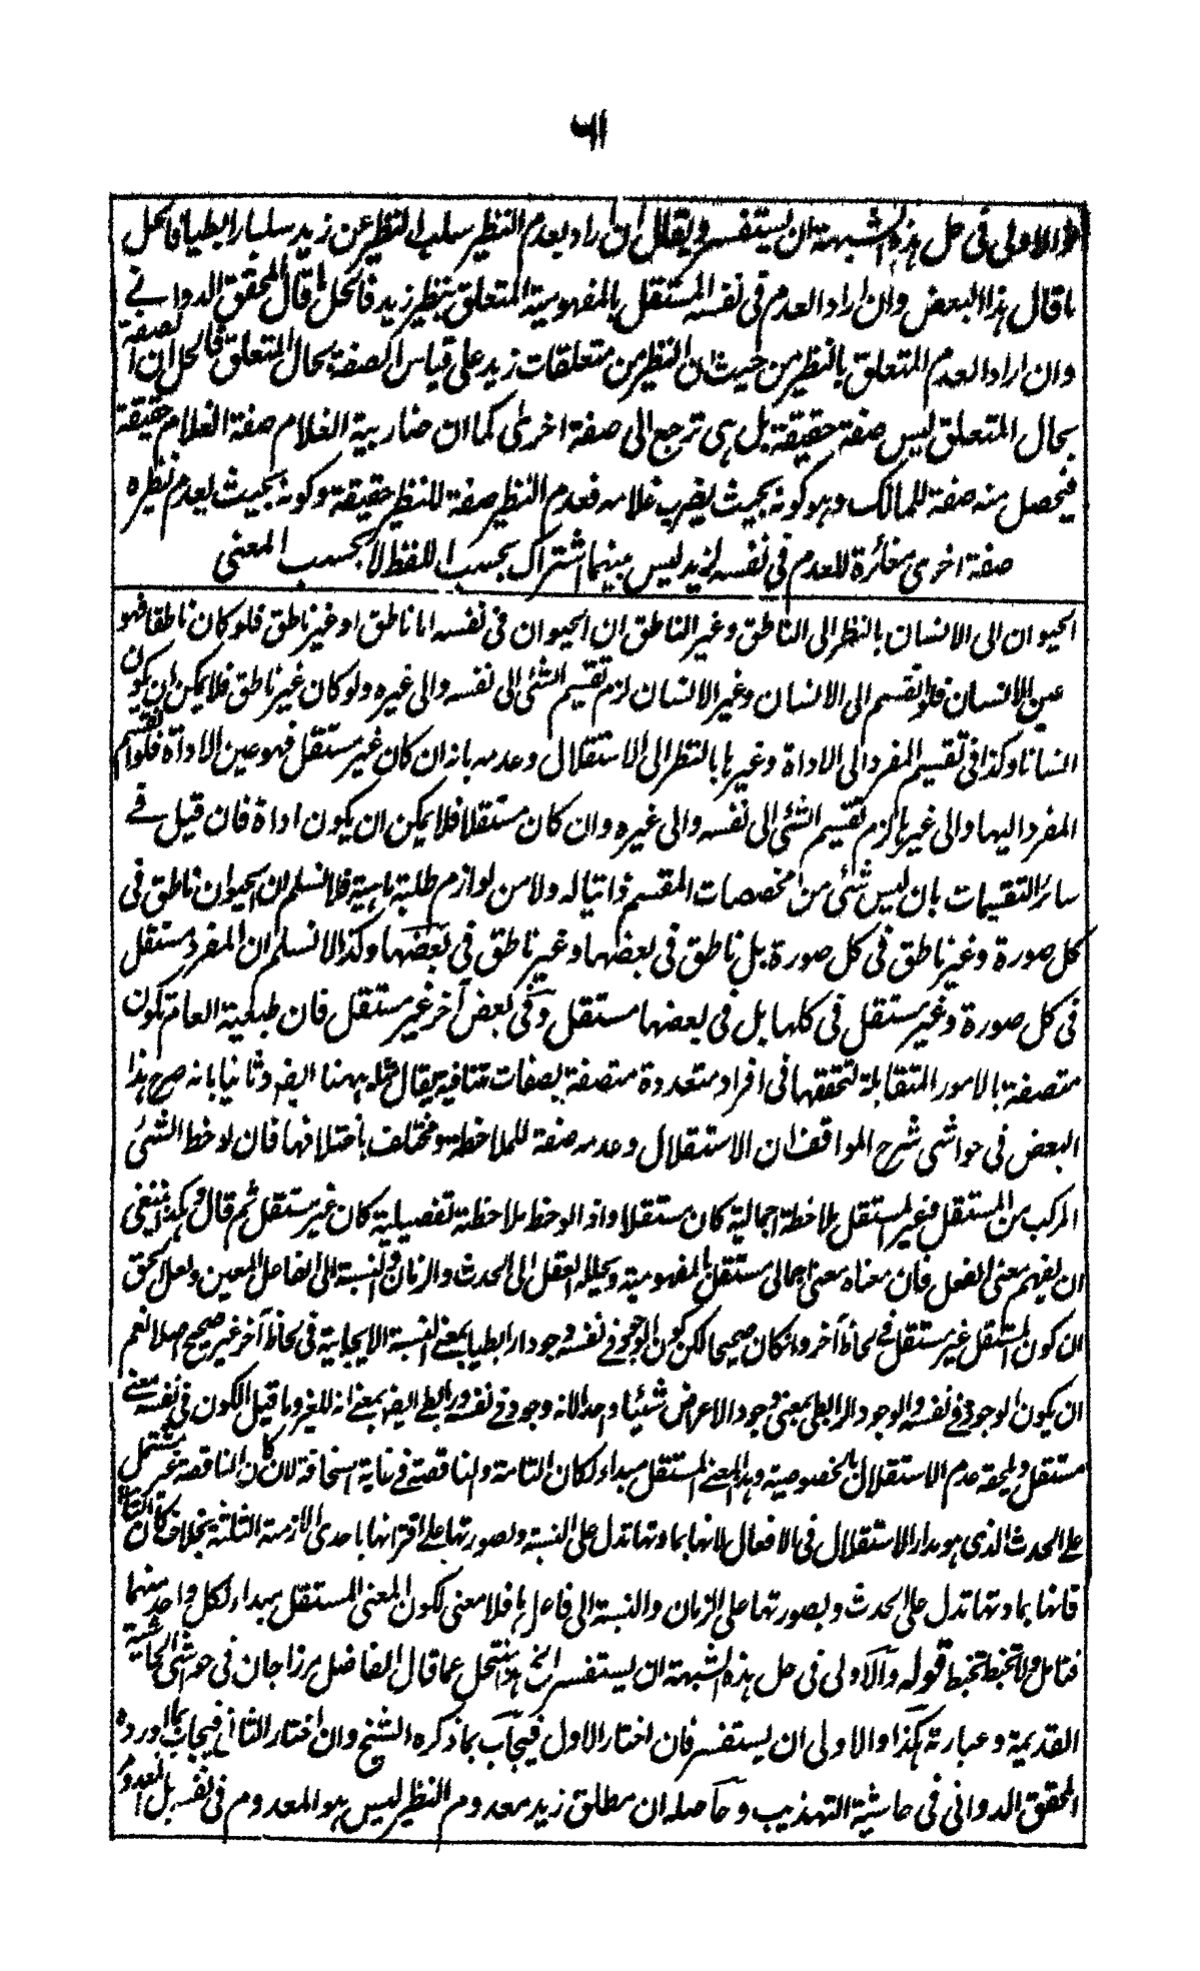 والاولى فى حل هذه الشبهة ان يستفسر ويقال ان اراد بعدم النظير سلب النظير عن زيد سلبا رابطيا فالحل
ما قال هذا البعض وان اراد العدم فى نفسه المستقل بالمفهومية المتعلق بنظير زيد فالحل ما قال المحقق الدوانے
وان اراد العدم المتعلق بالنظير من حيث ان النظير من متعلقات زيد على قياس الصفة بحال المتعلق فالحل ان الصفة
بحال المتعلق ليس صفة حقيقة بل هى ترجع الى صفة اخرى كما ان ضاربية الغلام صفة الغلام حقيقة
فيحصل منه صفة للمالك وهو كونه بحيث يضرب غلامه فعدم النظير صفة للنظير حقيقة وكونه بحيث يعدم نظيره
صفة اخرى مغائرة للعدم فى نفسه لزيد ليس بينهما اشتراك بحسب اللفظ لا بحسب المعنى
الحيوان الى الانسان بالنظر الى الناطق وغير الناطق ان الحيوان فى نفسه اما ناطق او غير ناطق فلو كان ناطقا فهو
عين الانسان فلو انقسم الى الانسان وغير الانسان لزم تقسيم الشئ الى نفسه والى غيره ولو كان غير ناطق فلا يمكن ان يكون
انسانا وكذا فى تقسيم المفرد الى الاداة وغيرها بالنظر الى الاستقلال وعدمه بانه ان كان غير مستقل فهو عين الاداة فلو انقسم
المفرد اليها والى غيرها لزم تقسيم الشئ الى نفسه والى غيره وان كان مستقلا فلا يمكن ان يكون اداة فان قيل فے
سائر التقسيمات بان ليس شئ من مخصصات المقسم ذاتيا له ولا من لوازم طلبة ماهيته فلا نسلم ان الحيوان ناطق فى
كل صورة وغير ناطق فى كل صورة بل ناطق فى بعضها وغير ناطق فى بعضها وكذا لا نسلم ان المفرد مستقل
فى كل صورة وغير مستقل فى كلها بل فى بعضها مستقل وفى بعض آخر غير مستقل فان طبيعة العام تكون
متصفة بالامور المتقابلة لتحققها فى افراد متعددة متصفة بصفات متنافية يقال مثله ههنا ايضا وثانيا بانه صرح هذا
البعض فى حواشى شرح المواقف ان الاستقلال وعدمه صفة للملاحظة ومختلف باختلافها فان لوحظ الشئ
المركب من المستقل وغير المستقل بملاحظة اجمالية كان مستقلا واذا لوحظ ملاحظة تفصيلية كان غير مستقل ثم قال وهكذا ينبغى
ان يفهم معنى الفعل فان معناه معنى اجمالى مستقل بالمفهومية ويحلله العقل الى الحدث والزمان والنسبة الى الفاعل المعين ولعل الحق
ان كون المستقل غير مستقل فى لحاظ آخر وان كان صحيحا لكن كون الوجود فى نفسه وجودا رابطيا بمعنى النسبة الايجابية فى لحاظ آخر غير صحيح اصلا نعم
ان يكون الوجود فى نفسه والوجود الرابطى بمعنى وجود الاعراض شيئا واحدا لانه وجود فى نفسه ورابطى ايضا بمعنى انه للغير وما قيل الكون فى نفسه معنے
مستقل ويلحقه عدم الاستقلال بالخصوصية وهذا المعنى المستقل مبدء لكان التامة والناقصة فى غاية السخافة لان كان الناقصة غير مشتمل
على الحدث الذى هو مدار الاستقلال فى الافعال لانها بمادتها تدل على النسبة وبصورتها على اقترانها باحدى الازمنة الثلثة بخلاف كان التامة
فانها بمادتها تدل على الحدث وبصورتها على الزمان والنسبة الى فاعل ما فلا معنى لكون المعنى المستقل مبدء لكل واحد منهما
فتامل ولا تخبط تخبط قوله والاولى فى حل هذه الشبهة ان يستفسر الخ هذا منتحل عما قال الفاضل مرزا جان فى حواشى الحاشية
القديمة وعبارته هكذا والاولى ان يستفسر فان اختار الاول فيجاب بما ذكره الشيخ وان اختار الثانى فيجاب بما اورده
المحقق الدوانى فى حاشية التهذيب وحاصله ان مطلق زيد معدوم النظير ليس هو المعدوم فى نفسه بل المعدوم